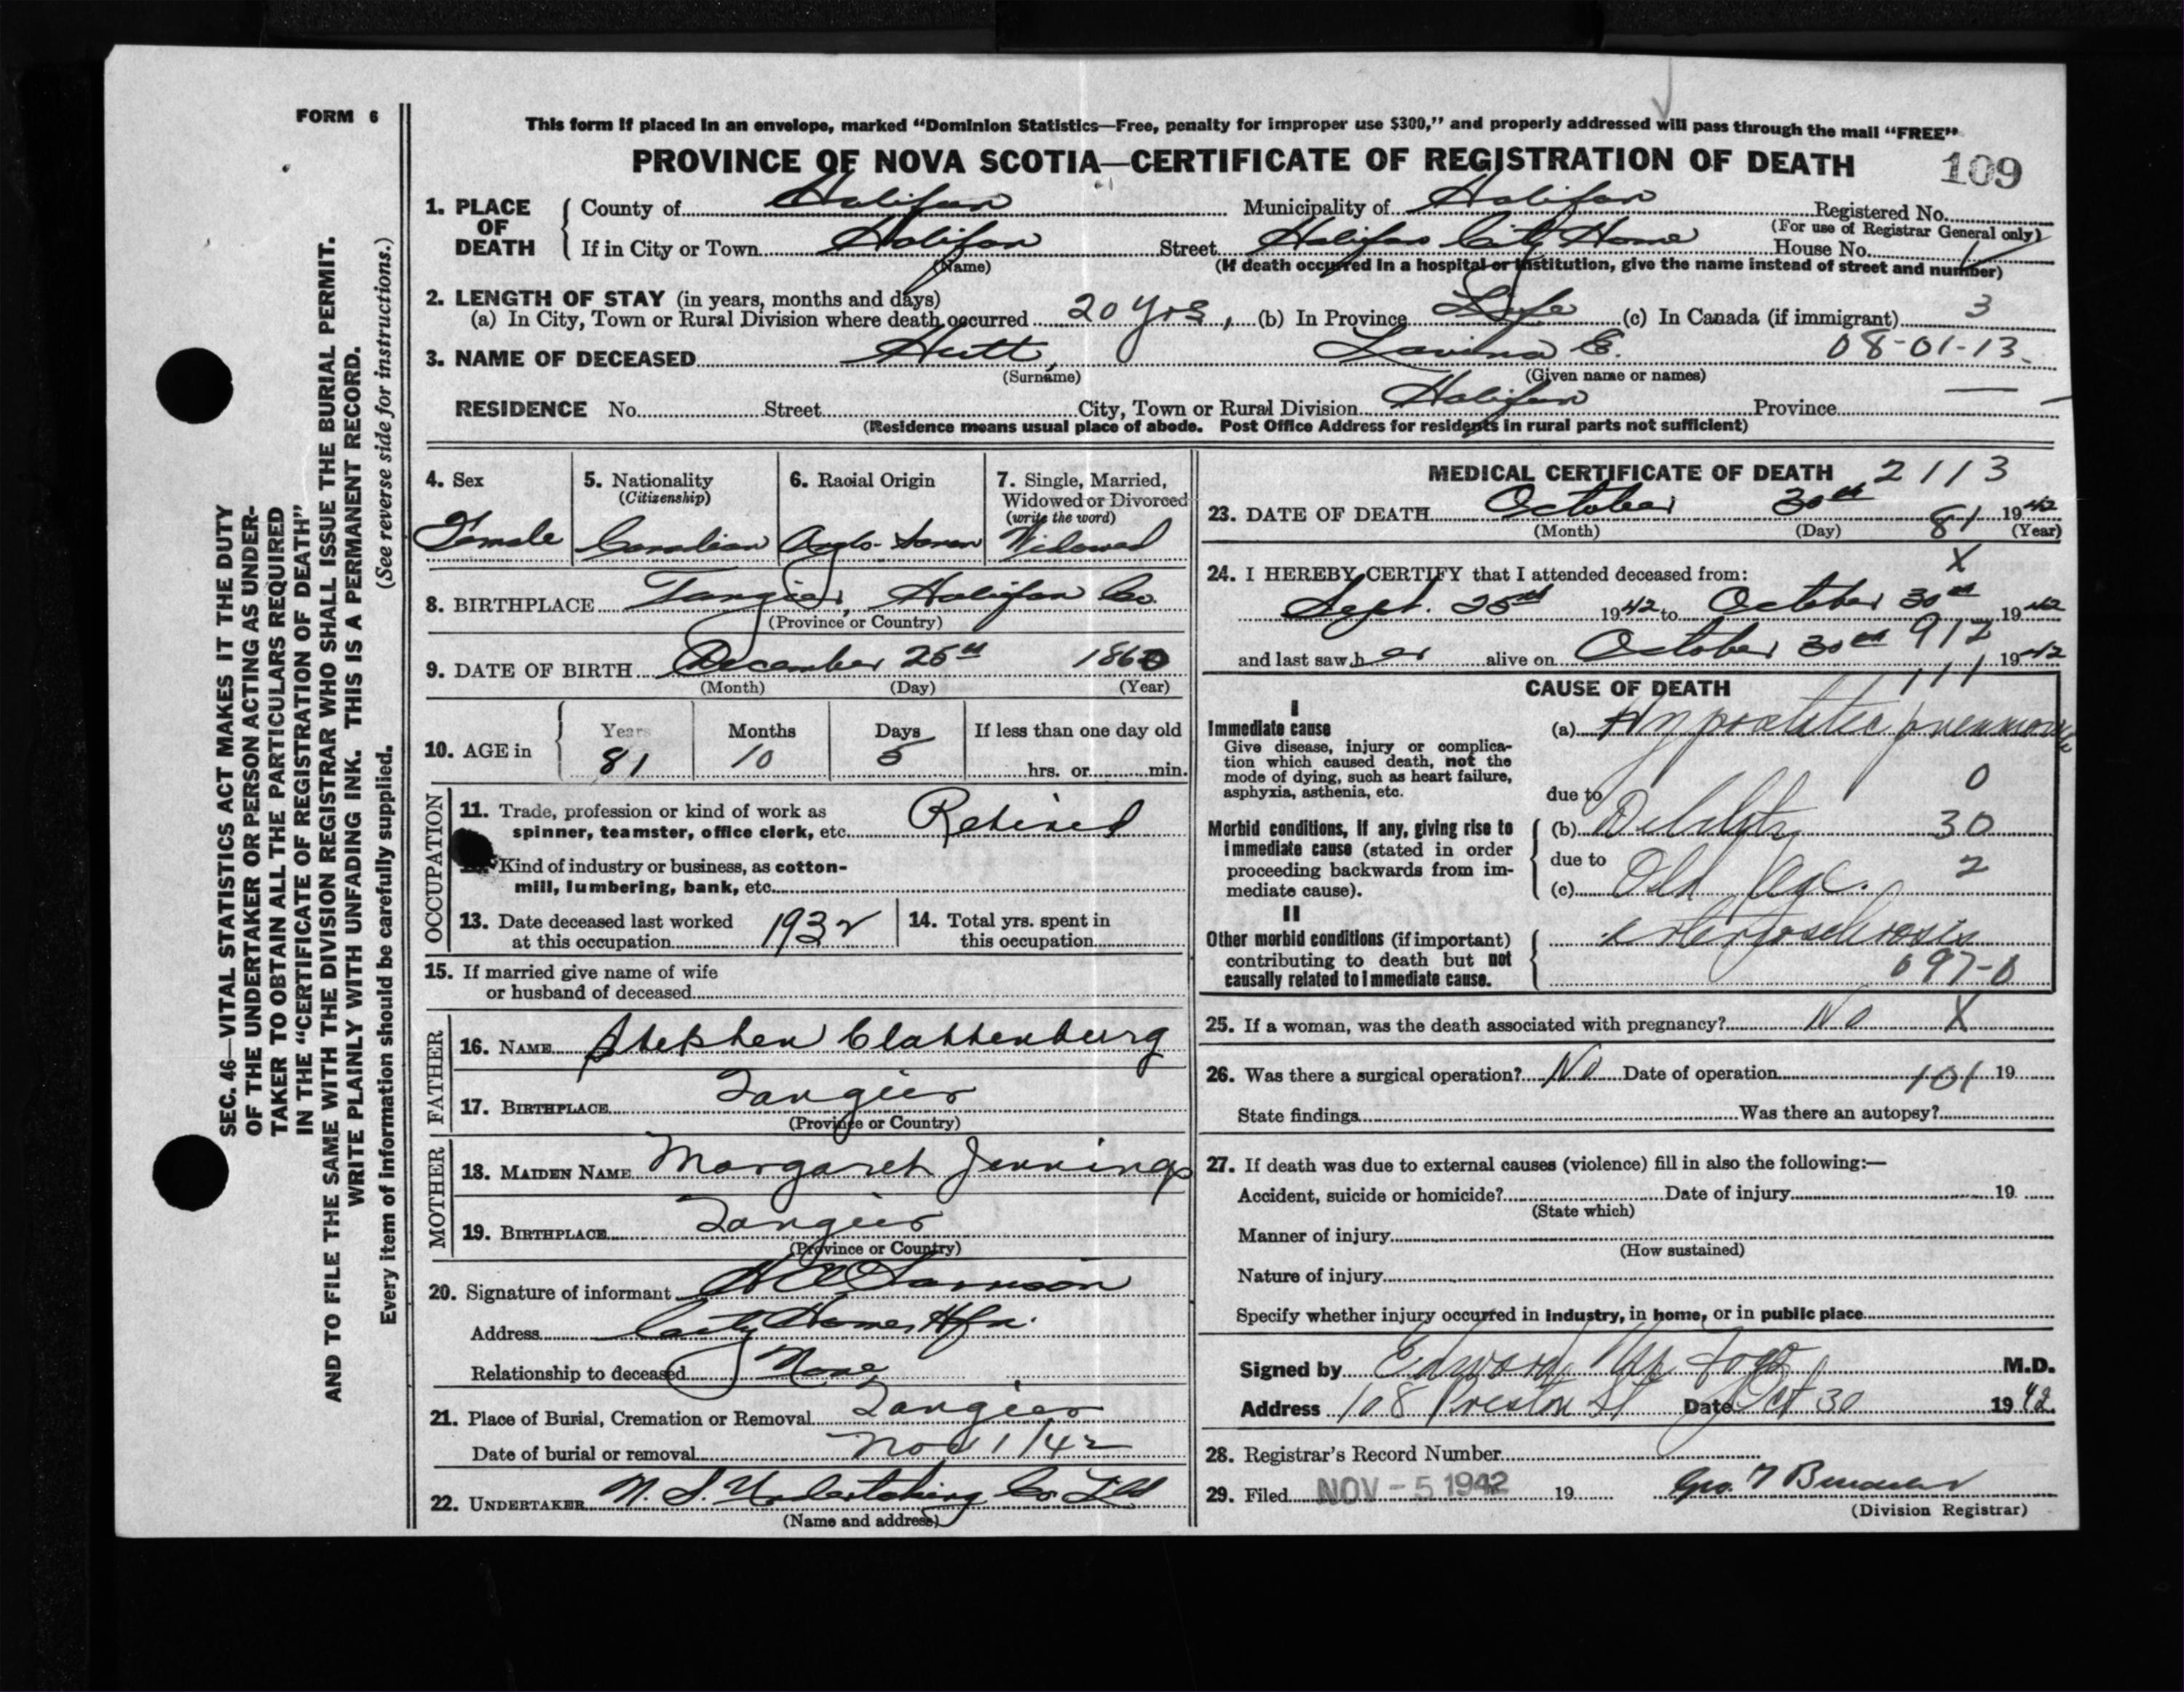 FORM 6
This form if placed in an envelope, marked “Dominion Statistics—Free, penalty for improper use $300,” and properly addressed will pass through the mail “FREE”
PROVINCE OF NOVA SCOTIA—CERTIFICATE OF REGISTRATION OF DEATH 109
1. PLACE OF DEATH
County of Halifax Municipality of Halifax Registered No.
(For use of Registrar General only)
If in City or Town Halifax Street Halifax City Home House No.
(Name) (If death occurred in a hospital or institution, give the name instead of street and number)
2. LENGTH OF STAY (in years, months and days)
(a) In City, Town or Rural Division where death occurred 20 yrs, (b) In Province Life (c) In Canada (if immigrant) 3
3. NAME OF DECEASED Hutt, Lavina E. 08-01-13
(Surname) (Given name or names)
RESIDENCE No. Street City, Town or Rural Division Halifax Province —
(Residence means usual place of abode. Post Office Address for residents in rural parts not sufficient)
4. Sex
Female
5. Nationality
(Citizenship)
Canadian
6. Racial Origin
Anglo-Saxon
7. Single, Married,
Widowed or Divorced
(write the word)
Widowed
8. BIRTHPLACE Tangier, Halifax Co.
(Province or Country)
9. DATE OF BIRTH December 25th 1860
(Month) (Day) (Year)
10. AGE in Years Months Days If less than one day old
81 10 5 hrs. or min.
OCCUPATION
11. Trade, profession or kind of work as
spinner, teamster, office clerk, etc. Retired
Kind of industry or business, as cotton-
mill, lumbering, bank, etc.
13. Date deceased last worked
at this occupation 1932
14. Total yrs. spent in
this occupation
15. If married give name of wife
or husband of deceased
FATHER
16. NAME Stephen Clattenburg
17. BIRTHPLACE Tangier
(Province or Country)
MOTHER
18. MAIDEN NAME Margaret Jennings
19. BIRTHPLACE Tangier
(Province or Country)
20. Signature of informant
Address City Home, Hfx.
Relationship to deceased None
21. Place of Burial, Cremation or Removal Tangier
Date of burial or removal Nov 1/42
22. UNDERTAKER N. S. Undertaking Co. Ltd
(Name and address)
MEDICAL CERTIFICATE OF DEATH 2113
23. DATE OF DEATH October 30th 81 1942
(Month) (Day) (Year)
X
24. I HEREBY CERTIFY that I attended deceased from:
Sept. 25th 1942 to October 30th 1942
912
and last saw her alive on October 30th 1942
111
CAUSE OF DEATH
I
Immediate cause
Give disease, injury or complica-
tion which caused death, not the
mode of dying, such as heart failure,
asphyxia, asthenia, etc.
(a) Hypostatic pneumonia
0
due to
Morbid conditions, if any, giving rise to
immediate cause (stated in order
proceeding backwards from im-
mediate cause).
(b) Debility 30
due to
(c) Old Age. 2
II
Other morbid conditions (if important)
contributing to death but not
causally related to immediate cause.
Arteriosclerosis
097-0
25. If a woman, was the death associated with pregnancy? No X
26. Was there a surgical operation? No Date of operation 101 19
State findings Was there an autopsy?
27. If death was due to external causes (violence) fill in also the following:—
Accident, suicide or homicide? Date of injury 19
(State which)
Manner of injury
(How sustained)
Nature of injury
Specify whether injury occurred in industry, in home, or in public place
Signed by Edward M.D.
Address 108 Preston St Date Oct 30 1942
28. Registrar's Record Number
29. Filed NOV - 5 1942 19 Geo. F
(Division Registrar)
SEC. 46—VITAL STATISTICS ACT MAKES IT THE DUTY
OF THE UNDERTAKER OR PERSON ACTING AS UNDER-
TAKER TO OBTAIN ALL THE PARTICULARS REQUIRED
IN THE “CERTIFICATE OF REGISTRATION OF DEATH”
AND TO FILE THE SAME WITH THE DIVISION REGISTRAR WHO SHALL ISSUE THE BURIAL PERMIT.
WRITE PLAINLY WITH UNFADING INK. THIS IS A PERMANENT RECORD.
Every item of information should be carefully supplied. (See reverse side for instructions.)